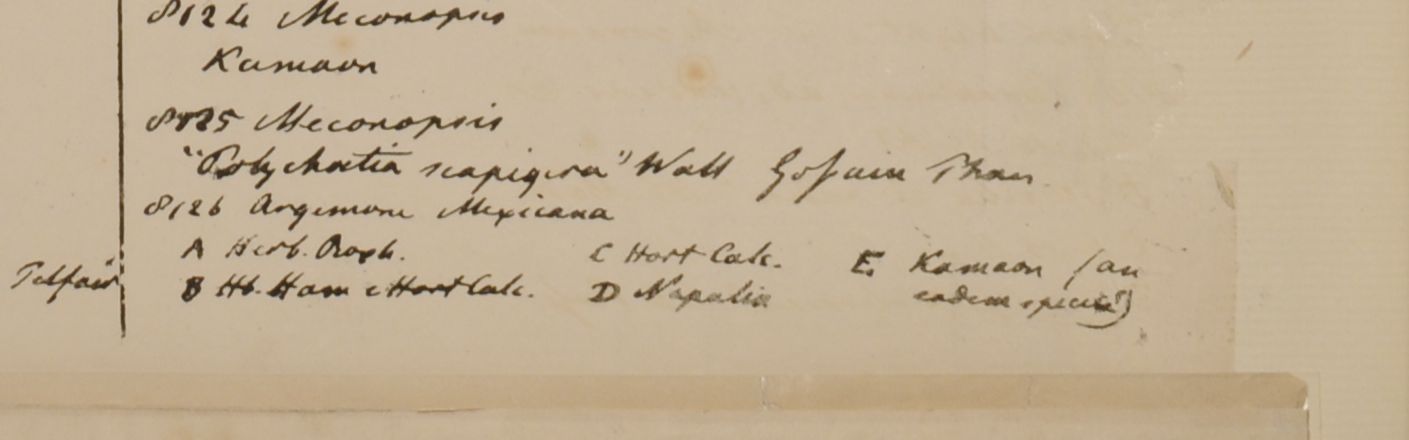 8124 Meconopsis
Kamaon
8125 Meconopsis
"Polychaetia scapigera" Wall Gossain Than
8126 Argemone Mexicana
A Herb. Roxb. C Hort Calc. E. Kamaon (an
Telfair B Hb. Ham e Hort Calc. D Napalia eadem species?)